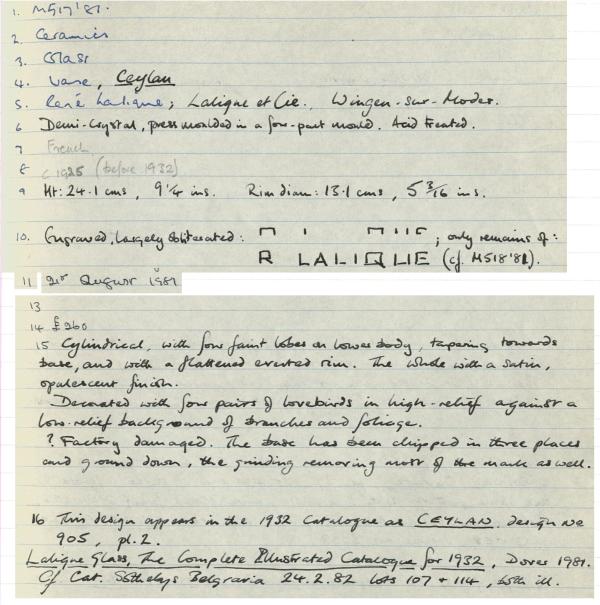 1. M517'81.
2. Ceramics
3. Glass
4. Vase, Ceylan
5. René Lalique; Lalique et Cie., Wingen-sur-Moder.
6 Demi-crystal, press moulded in a four-part mould. Acid treated.
7 French
8 c 1925 (before 1932)
9 Ht: 24.1 cms, 9 1/2 ins. Rim diam: 13.1 cms, 5 3/16 ins.
10. Engraved, largely obliterated: ; only remains of:
R LALIQUE (cf. M518'81).
11 21st August 1981
13
14 £260
15 Cylindrical, with four faint lobes on lower body, tapering towards
base, and with a flattened everted rim. The whole with a satin,
opalescent finish.
Decorated with four pairs of lovebirds in high-relief against a
low-relief background of branches and foliage.
? Factory damaged. The base has been chipped in three places
and ground down, the grinding removing most of the mark as well.
16 This design appears in the 1932 Catalogue as CEYLAN design no
905, pl. 2.
Lalique Glass, The Complete Illustrated Catalogue for 1932, Dover 1981.
Cf Cat. Sothebys Belgravia 24.2.82 lots 107 + 114, both ill.